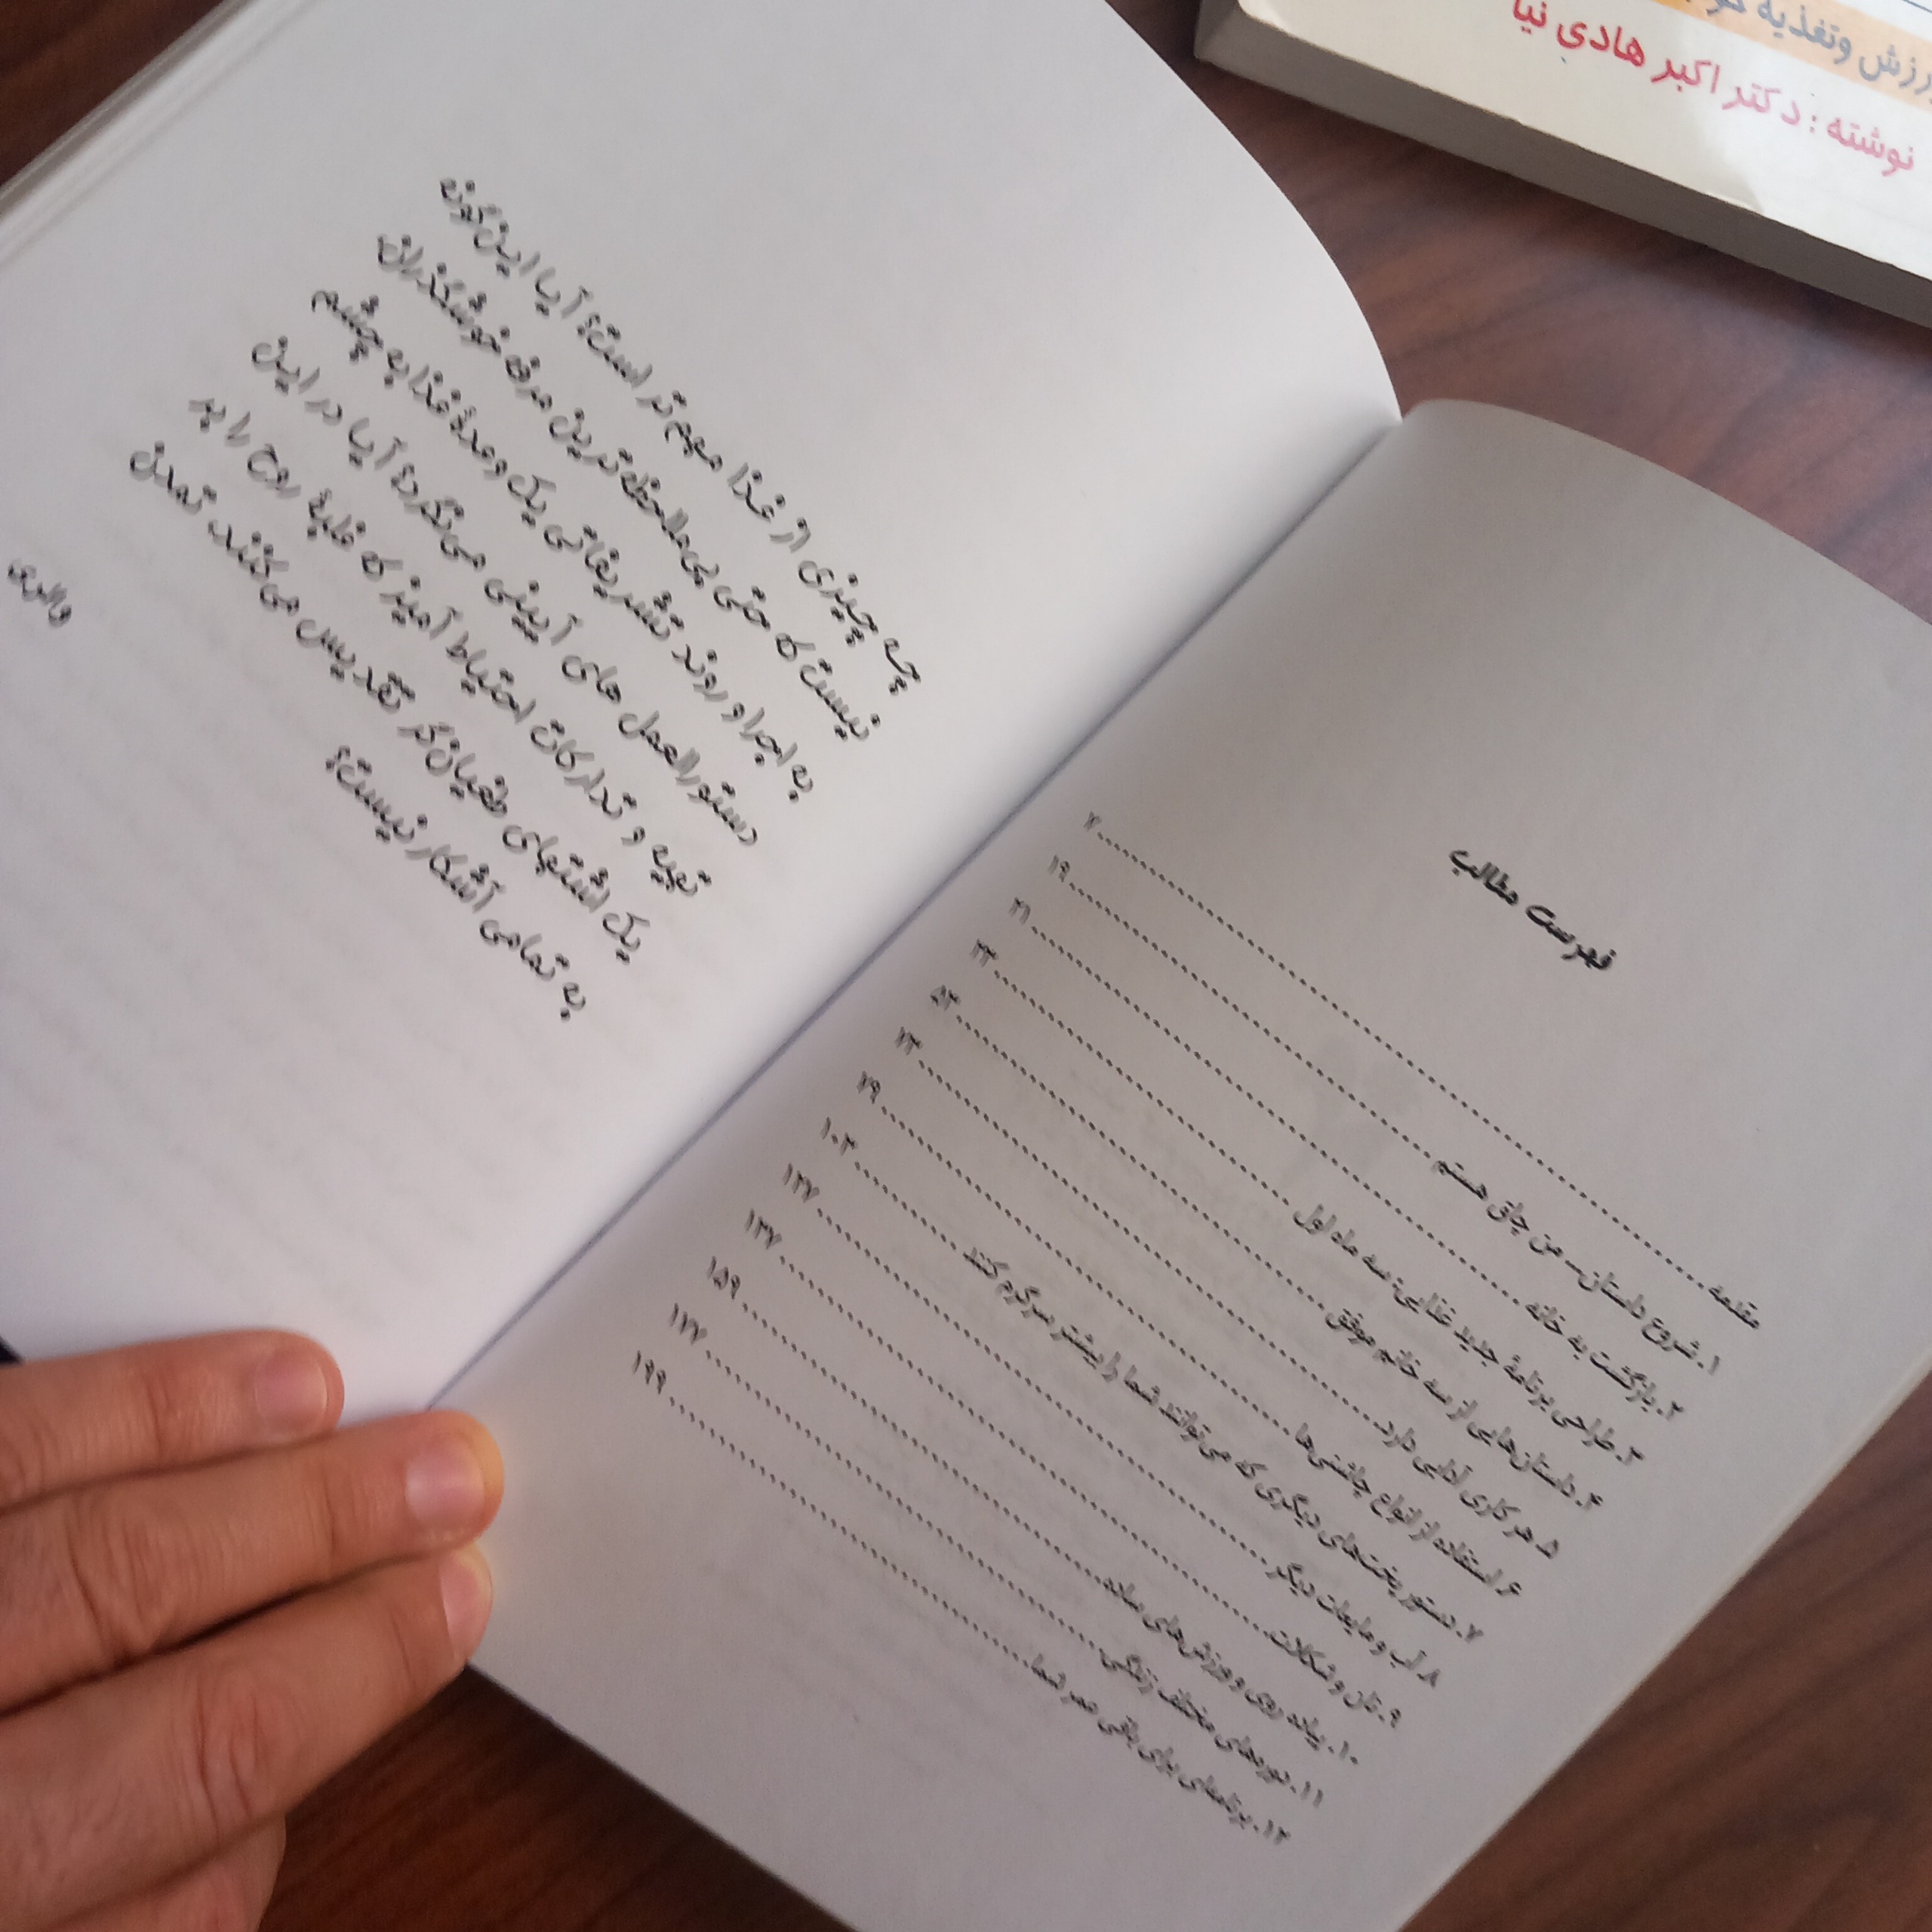 چه چیزی از غذا مهم‌تر است؟ آیا این‌گونه
نیست که حتی بی‌ملاحظه‌ترین مردی خوشگذران
به اجرا و روند تشریفاتی یک وعدۀ غذا به چشم
دستورالعمل های آیینی می‌نگرد؟ آیا در این
تهیه و تدارکات احتیاط آمیز که غلبۀ روح را بر
یک اشتهای طغیان‌گر تقدیس می‌کنند، تمدن
به تمامی آشکار نیست؟
والری
فهرست مطالب
مقدمه ۷
۱. شروع داستان_ من چاق هستم ۱۹
۲. بازگشت به خانه ۲۱
۳. طراحی برنامۀ جدید غذایی: سه ماه اول
۴. داستان‌هایی از سه خانم موفق ۵۳
۵. هر کاری آدابی دارد
۶. استفاده از انواع چاشنی‌ها ۷۹
۷. دستور پخت‌های دیگری که می‌توانند شما را بیشتر سرگرم کنند ۱۰۳
۸. آب و مایعات دیگر ۱۲۷
۹. نان و شکلات ۱۳۷
۱۰. پیاده روی و ورزش‌های ساده ۱۵۹
۱۱. دوره‌های مختلف زندگی ۱۷۷
۱۲. برنامه‌ای برای باقی عمر شما ۱۹۹
ورزش وتغذیه
نوشته : دکتر اکبر هادی نیا